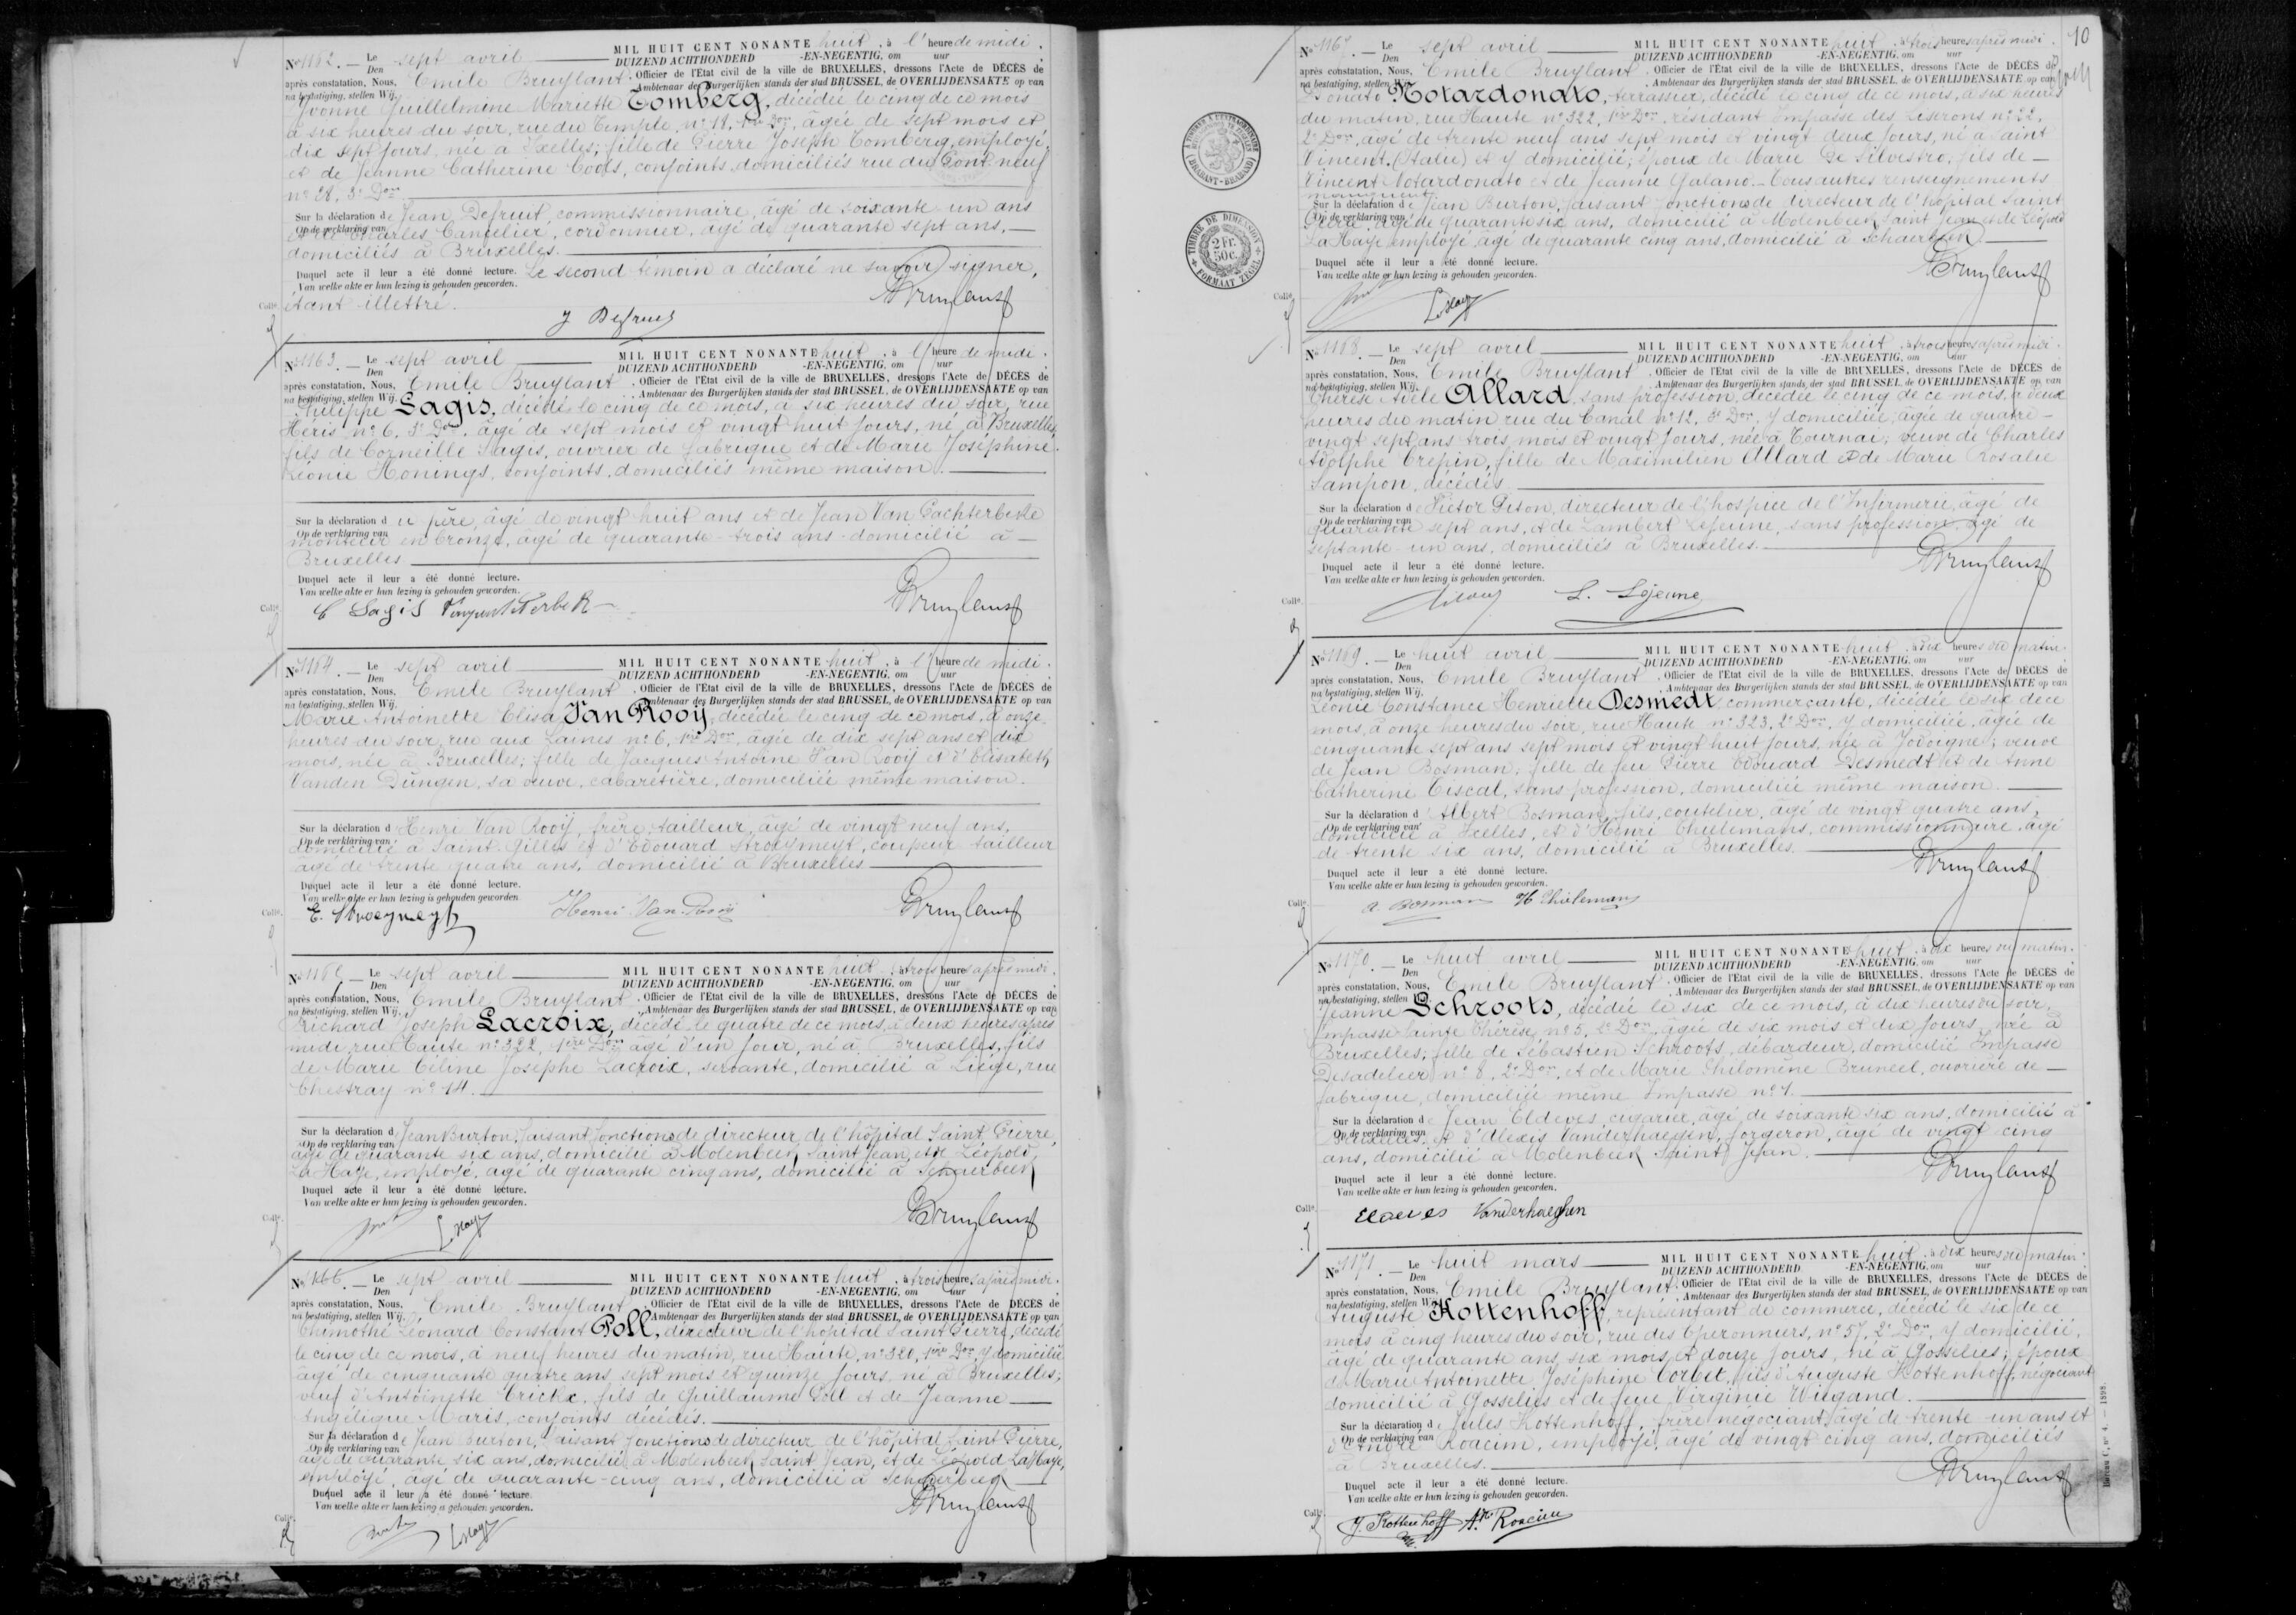 No 1162. — Le sept avril MIL HUIT CENT NONANTE huit, à l'heure de midi.
Den DUIZEND ACHTHONDERD -EN-NEGENTIG, om uur
après constatation, Nous, Emile Bruylant, Officier de l'État civil de la ville de BRUXELLES, dressons l'Acte de DÉCÈS de
na bestatiging, stellen Wij, Ambtenaar des Burgerlijken stands der stad BRUSSEL, de OVERLIJDENSAKTE op van
Yvonne Guillelmine Mariette Tomberg, décédée le cinq de ce mois
à six heures du soir, rue du Temple, no 18, 1re Don, âgée de sept mois et
dix sept jours, née à Ixelles; fille de Pierre Joseph Tomberg, employé,
et de Jeanne Catherine Cools, conjoints, domiciliés rue du Pont neuf
no 28, 3e Don
Sur la déclaration de Jean Defruit, commissionnaire, âgé de soixante un ans
Op de verklaring van et de Charles Cancelier, cordonnier, âgé de quarante sept ans,
domiciliés à Bruxelles.
Duquel acte il leur a été donné lecture. Le second témoin a déclaré ne savoir signer,
Van welke akte er hun lezing is gehouden geworden.
étant illettré. Bruylant
J Defruit
No 1163. — Le sept avril MIL HUIT CENT NONANTE huit, à l'heure de midi.
Den DUIZEND ACHTHONDERD -EN-NEGENTIG, om uur
après constatation, Nous, Emile Bruylant, Officier de l'État civil de la ville de BRUXELLES, dressons l'Acte de DÉCÈS de
na bestatiging, stellen Wij, Ambtenaar des Burgerlijken stands der stad BRUSSEL, de OVERLIJDENSAKTE op van
Philippe Sagis, décédé le cinq de ce mois, à six heures du soir, rue
Héris no 6, 3e Don, âgé de sept mois et vingt huit jours, né à Bruxelles,
fils de Corneille Sagis, ouvrier de fabrique et de Marie Joséphine
Léonie Honings, conjoints, domiciliés même maison.
Sur la déclaration du père, âgé de vingt huit ans et de Jean Van Pachterbeke
Op de verklaring van monteur en bronze, âgé de quarante-trois ans domicilié à
Bruxelles
Duquel acte il leur a été donné lecture.
Van welke akte er hun lezing is gehouden geworden.
C Sagis Bruylant
No 1164. — Le sept avril MIL HUIT CENT NONANTE huit, à l'heure de midi.
Den DUIZEND ACHTHONDERD -EN-NEGENTIG, om uur
après constatation, Nous, Emile Bruylant, Officier de l'État civil de la ville de BRUXELLES, dressons l'Acte de DÉCÈS de
na bestatiging, stellen Wij, Ambtenaar des Burgerlijken stands der stad BRUSSEL, de OVERLIJDENSAKTE op van
Marie Antoinette Elisa Van Rooij, décédée le cinq de ce mois, à onze
heures du soir, rue aux Laines no 6, 1re Don, âgée de dix sept ans et dix
mois, née à Bruxelles; fille de Jacques Antoine Van Rooij et d'Elisabeth
Vanden Dungen, sa veuve, cabaretière, domiciliée même maison.
Sur la déclaration d Henri Van Rooij, frère, tailleur, âgé de vingt neuf ans,
Op de verklaring van domicilié à Saint-Gilles et d'Edouard Stroeymeyt, coupeur tailleur
âgé de trente quatre ans, domicilié à Bruxelles
Duquel acte il leur a été donné lecture.
Van welke akte er hun lezing is gehouden geworden
E. Stroeymeyt Henri Van Rooij Bruylant
No 1165 — Le sept avril MIL HUIT CENT NONANTE huit, à trois heures après midi.
Den DUIZEND ACHTHONDERD -EN-NEGENTIG, om uur
après constatation, Nous, Emile Bruylant, Officier de l'État civil de la ville de BRUXELLES, dressons l'Acte de DÉCÈS de
na bestatiging, stellen Wij, Ambtenaar des Burgerlijken stands der stad BRUSSEL, de OVERLIJDENSAKTE op van
Richard Joseph Lacroix, décédé le quatre de ce mois, à deux heures après
midi, rue Haute no 322, 1ère Don âgé d'un jour, né à Bruxelles, fils
de Marie Céline Josèphe Lacroix, servante, domicilié à Liége, rue
Chestray no 14.
Sur la déclaration de Jean Burton, faisant fonctions de directeur de l'hôpital Saint Pierre,
Op de verklaring van âgé de quarante six ans, domicilié à Molenbeek Saint Jean, et de Léopold
La Haye, employé, âgé de quarante cinq ans, domicilié à Schaerbeek
Duquel acte il leur a été donné lecture.
Van welke akte er hun lezing is gehouden geworden.
Bruylant
No 1166. — Le sept avril MIL HUIT CENT NONANTE huit, à trois heures après midi.
Den DUIZEND ACHTHONDERD -EN-NEGENTIG, om uur
après constatation, Nous, Emile Bruylant, Officier de l'État civil de la ville de BRUXELLES, dressons l'Acte de DÉCÈS de
na bestatiging, stellen Wij, Ambtenaar des Burgerlijken stands der stad BRUSSEL, de OVERLIJDENSAKTE op van
Thimothé Léonard Constant Poll, directeur de l'hôpital Saint Pierre, décédé
le cinq de ce mois, à neuf heures du matin, rue Haute, no 320, 1ère Don, y domicilié
âgé de cinquante quatre ans, sept mois et quinze jours, né à Bruxelles;
veuf d'Antoinette Crickx, fils de Guillaume Poll et de Jeanne
Angélique Maris, conjoints décédés.
Sur la déclaration de Jean Burton, faisant fonctions de directeur de l'hôpital Saint Pierre,
Op de verklaring van âgé de quarante six ans, domicilié à Molenbeek Saint Jean, et de Léopold La Haye,
employé, âgé de quarante-cinq ans, domicilié à Schaerbeek
Duquel acte il leur a été donné lecture.
Van welke akte er hun lezing is gehouden geworden.
Bruylant
10
No 1167. — Le sept avril MIL HUIT CENT NONANTE huit, à trois heures après midi.
Den DUIZEND ACHTHONDERD -EN-NEGENTIG, om uur
après constatation, Nous, Emile Bruylant, Officier de l'État civil de la ville de BRUXELLES, dressons l'Acte de DÉCÈS de
na bestatiging, stellen Wij, Ambtenaar des Burgerlijken stands der stad BRUSSEL, de OVERLIJDENSAKTE op van
Donato Notardonato, terrassier, décédé le cinq de ce mois, à six heures
du matin, rue Haute no 322, 1re Don, résidant Impasse des Liserons no 22,
2e Don, âgé de trente neuf ans sept mois et vingt deux jours, né à Saint
Vincent (Italie) et y domicilié; époux de Marie De Silvestro, fils de
Vincent Notardonato et de Jeanne Galano. Tous autres renseignements
manquent
Sur la déclaration de Jean Burton, faisant fonctions de directeur de l'hôpital Saint
Op de verklaring van Pierre, âgé de quarante six ans, domicilié à Molenbeek Saint Jean et de Léopold
La Haye employé âgé de quarante cinq ans, domicilié à Schaerbeek
Duquel acte il leur a été donné lecture.
Van welke akte er hun lezing is gehouden geworden.
Bruylant
(BRABANT-BRABAND)
TIMBRE DE DIMENSION
2 Fr. 50 c.
FORMAAT ZEGEL
No 1168. — Le sept avril MIL HUIT CENT NONANTE huit, à trois heures après midi.
Den DUIZEND ACHTHONDERD -EN-NEGENTIG, om uur
après constatation, Nous, Emile Bruylant, Officier de l'État civil de la ville de BRUXELLES, dressons l'Acte de DÉCÈS de
na bestatiging, stellen Wij, Ambtenaar des Burgerlijken stands der stad BRUSSEL, de OVERLIJDENSAKTE op van
Thérèse Adèle Allard, sans profession, décédée le cinq de ce mois, à deux
heures du matin rue du Canal no 12, 3e Don, y domiciliée, âgée de quatre-
vingt sept ans trois mois et vingt jours, née à Tournai; veuve de Charles
Adolphe Crepin, fille de Maximilien Allard et de Marie Rosalie
Sampon, décédés
Sur la déclaration de Victor Pison, directeur de l'hospice de l'Infirmerie, âgé de
Op de verklaring van quarante sept ans, et de Lambert Lejeune, sans profession âgé de
septante-un ans, domiciliés à Bruxelles.
Duquel acte il leur a été donné lecture.
Van welke akte er hun lezing is gehouden geworden.
L. Lejeune Bruylant
No 1169. — Le huit avril MIL HUIT CENT NONANTE huit, à dix heures du matin.
Den DUIZEND ACHTHONDERD -EN-NEGENTIG, om uur
après constatation, Nous, Emile Bruylant, Officier de l'État civil de la ville de BRUXELLES, dressons l'Acte de DÉCÈS de
na bestatiging, stellen Wij, Ambtenaar des Burgerlijken stands der stad BRUSSEL, de OVERLIJDENSAKTE op van
Léonie Constance Henriette Desmedt, commerçante, décédée le six de ce
mois, à onze heures du soir, rue Haute no 323, 2e Don, y domiciliée, âgée de
cinquante sept ans sept mois et vingt huit jours, née à Jodoigne; veuve
de Jean Bosman; fille de feu Pierre Edouard Desmedt et de Anne
Catherine Tiscal, sans profession, domiciliée même maison.
Sur la déclaration d'Albert Bosman, fils, coutelier, âgé de vingt quatre ans,
Op de verklaring van domicilié à Ixelles, et d'Henri Thielemans, commissionnaire, âgé
de trente six ans, domicilié à Bruxelles.
Duquel acte il leur a été donné lecture.
Van welke akte er hun lezing is gehouden geworden.
A. Bosman H Thielemans Bruylant
No 1170. — Le huit avril MIL HUIT CENT NONANTE huit, à dix heures du matin.
Den DUIZEND ACHTHONDERD -EN-NEGENTIG, om uur
après constatation, Nous, Emile Bruylant, Officier de l'État civil de la ville de BRUXELLES, dressons l'Acte de DÉCÈS de
na bestatiging, stellen Wij, Ambtenaar des Burgerlijken stands der stad BRUSSEL, de OVERLIJDENSAKTE op van
Jeanne Schroots, décédée le six de ce mois, à dix heures du soir,
Impasse Sainte Thérèse, no 5, 2e Don, âgée de six mois et dix jours, née à
Bruxelles, fille de Sébastien Schroots, débardeur, domicilié Impasse
Desadeleer no 8, 2e Don, et de Marie Philomène Bruneel, ouvrière de
fabrique, domiciliée même Impasse no 1.
Sur la déclaration de Jean Eldeves, cigarier, âgé de soixante six ans, domicilié à
Op de verklaring van Bruxelles, et d'Alexis Vanderhaeghen, forgeron, âgé de vingt cinq
ans, domicilié à Molenbeek Saint Jean.
Duquel acte il leur a été donné lecture.
Van welke akte er hun lezing is gehouden geworden.
Vanderhaeghen Bruylant
No 1171. — Le huit mars MIL HUIT CENT NONANTE huit, à dix heures du matin.
Den DUIZEND ACHTHONDERD -EN-NEGENTIG, om uur
après constatation, Nous, Emile Bruylant, Officier de l'État civil de la ville de BRUXELLES, dressons l'Acte de DÉCÈS de
na bestatiging, stellen Wij, Ambtenaar des Burgerlijken stands der stad BRUSSEL, de OVERLIJDENSAKTE op van
Auguste Hottenhoff, représentant de commerce, décédé le six de ce
mois à cinq heures du soir, rue des Eperonniers, no 57, 2e Don, y domicilié,
âgé de quarante ans six mois et douze jours, né à Gosselies; époux
de Marie Antoinette Joséphine Corbet, fils d'Auguste Hottenhoff, négociant
domicilié à Gosselies et de feue Virginie Wiegand.
Sur la déclaration de Jules Hottenhoff, frère négociant, âgé de trente-un ans et
Op de verklaring van d'André Roacim, employé, âgé de vingt cinq ans, domiciliés
à Bruxelles.
Duquel acte il leur a été donné lecture.
Van welke akte er hun lezing is gehouden geworden.
J. Hottenhoff Bruylant
Bureau C, no 4. — 1898.